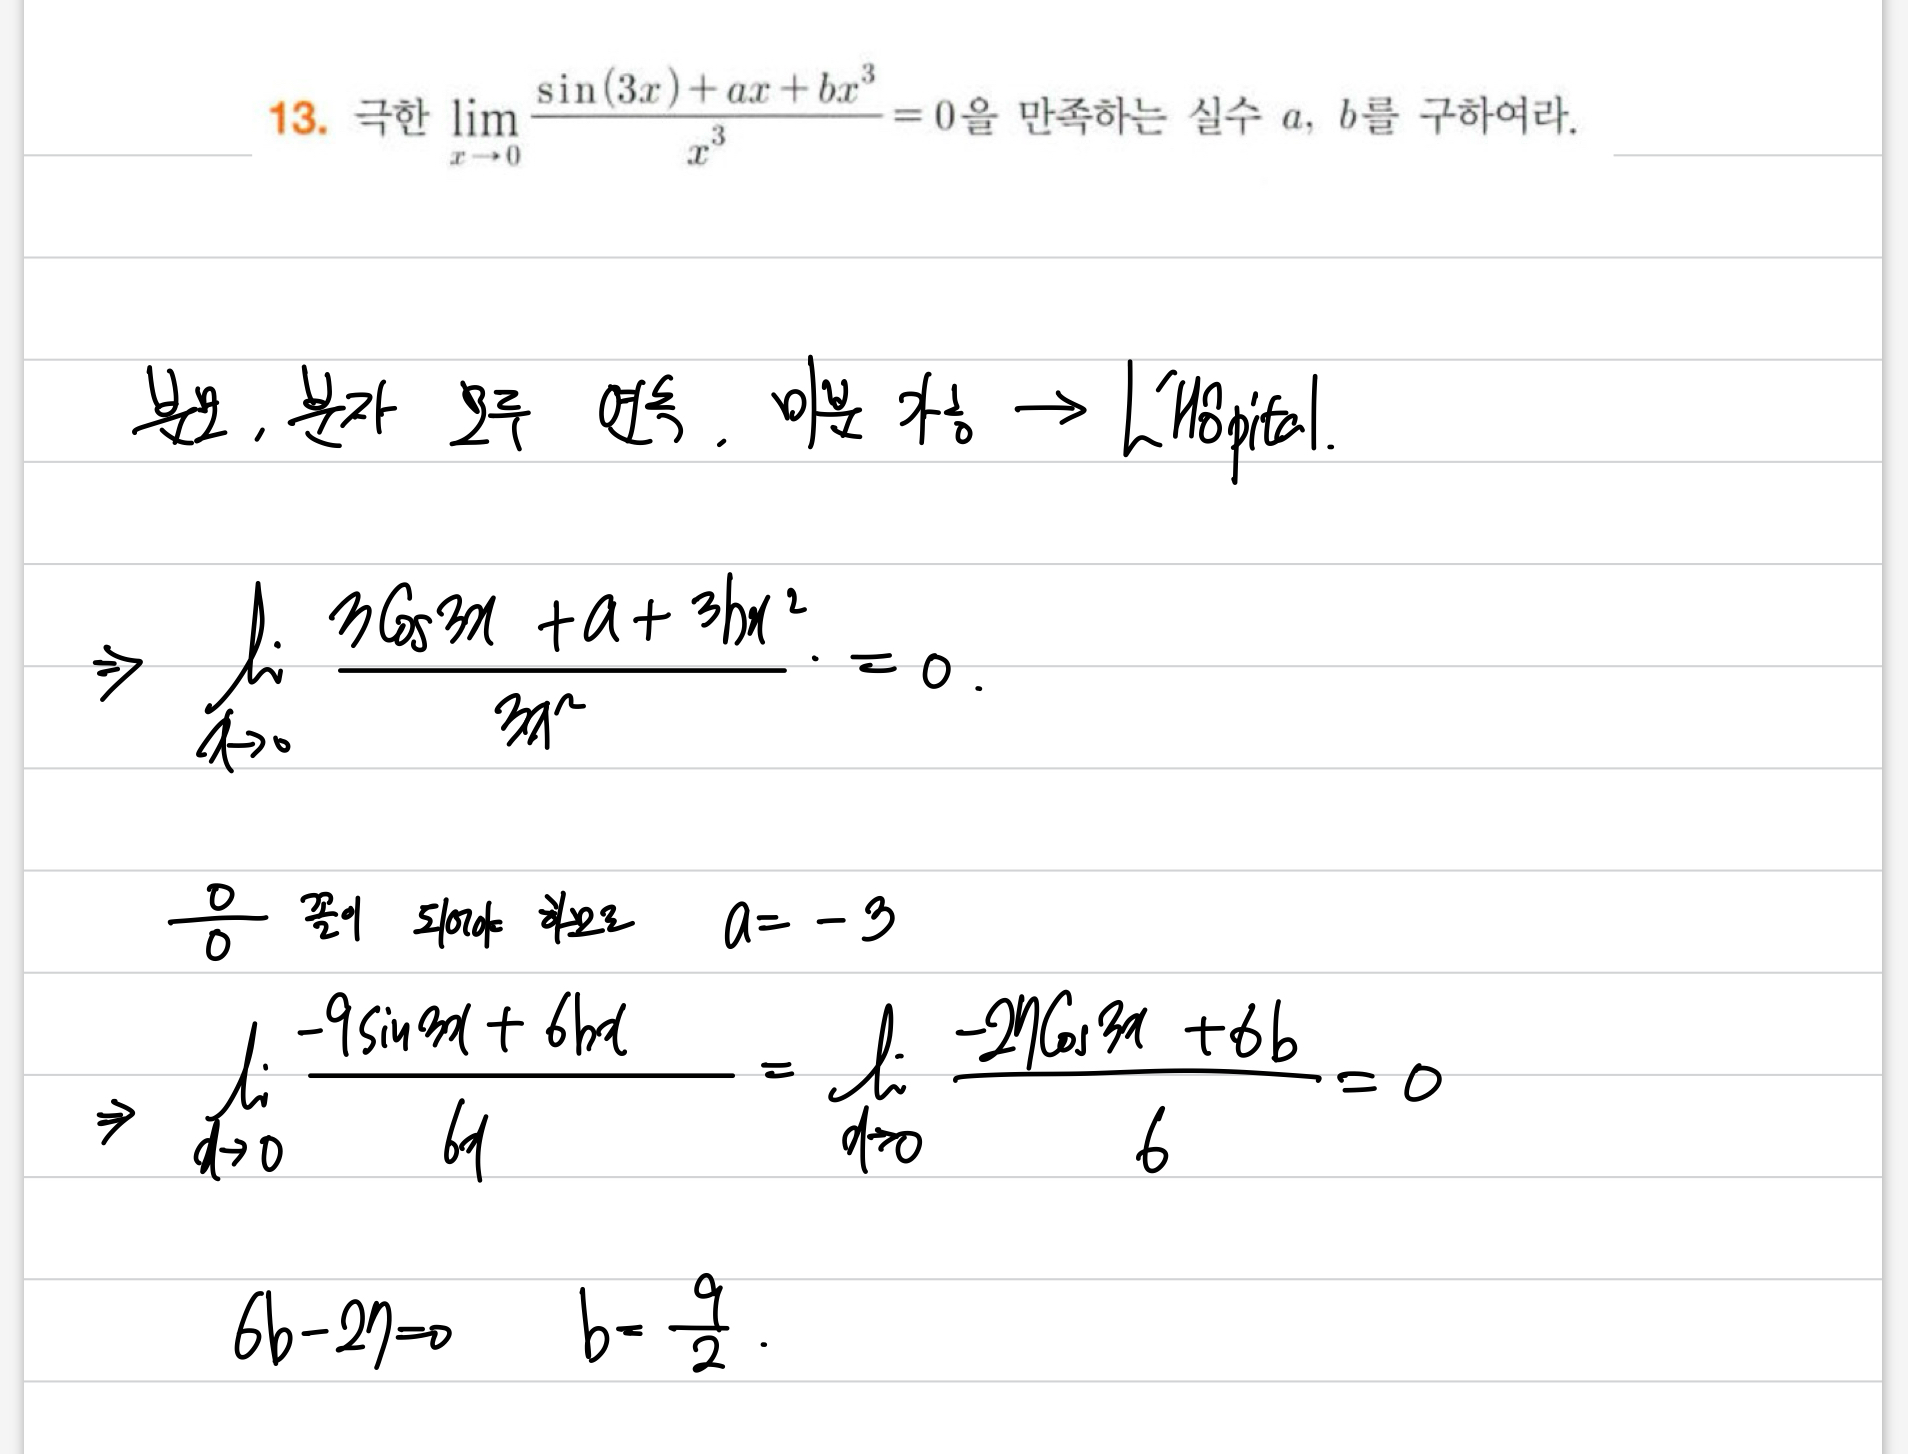 13. 극한 lim_{x→0} (sin(3x)+ax+bx³)/x³ = 0을 만족하는 실수 a, b를 구하여라.
분모, 분자 모두 연속, 미분 가능 → L'Hôpital.
⇒ lim_{x→0} (3cos3x + a + 3bx²)/(3x²) = 0.
0/0 꼴이 되어야 하므로 a = -3
⇒ lim_{x→0} (-9sin3x + 6bx)/(6x) = lim_{x→0} (-27cos3x + 6b)/6 = 0
6b-27=0 b= 9/2.